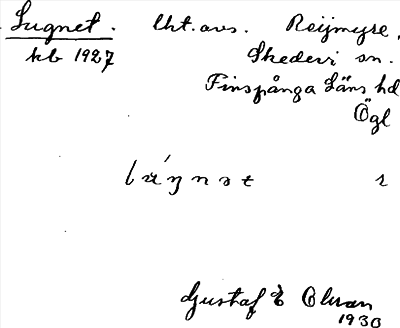 Lugnet. Uht. avs. Reijmyre,
kb 1927 Skedevi sn.
Finspånga Läns hd
Ögl
Gustaf E Olsson
1930